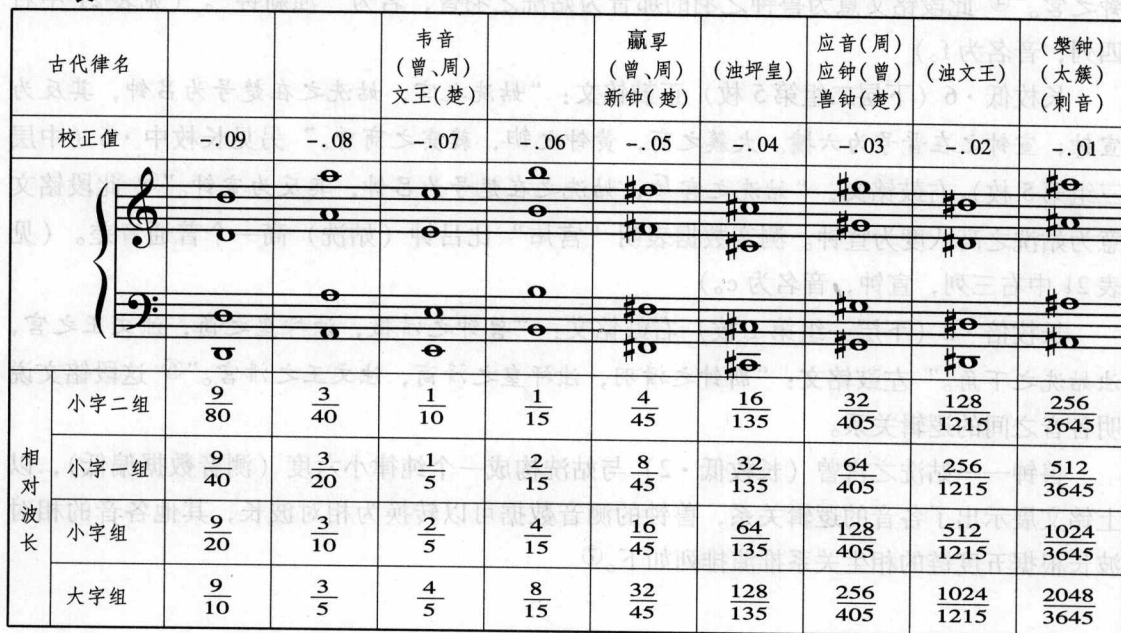 古代律名
韦音
(曾、周)
文王(楚)
赢孠
(曾、周)
新钟(楚)
(浊坪皇)
应音(周)
应钟(曾)
兽钟(楚)
(浊文王)
槃钟
(太簇)
(刺音)
校正值 -.09 -.08 -.07 -.06 -.05 -.04 -.03 -.02 -.01
相对波长
小字二组 9/80 3/40 1/10 1/15 4/45 16/135 32/405 128/1215 256/3645
小字一组 9/40 3/20 1/5 2/15 8/45 32/135 64/405 256/1215 512/3645
小字组 9/20 3/10 2/5 4/15 16/45 64/135 128/405 512/1215 1024/3645
大字组 9/10 3/5 4/5 8/15 32/45 128/135 256/405 1024/1215 2048/3645